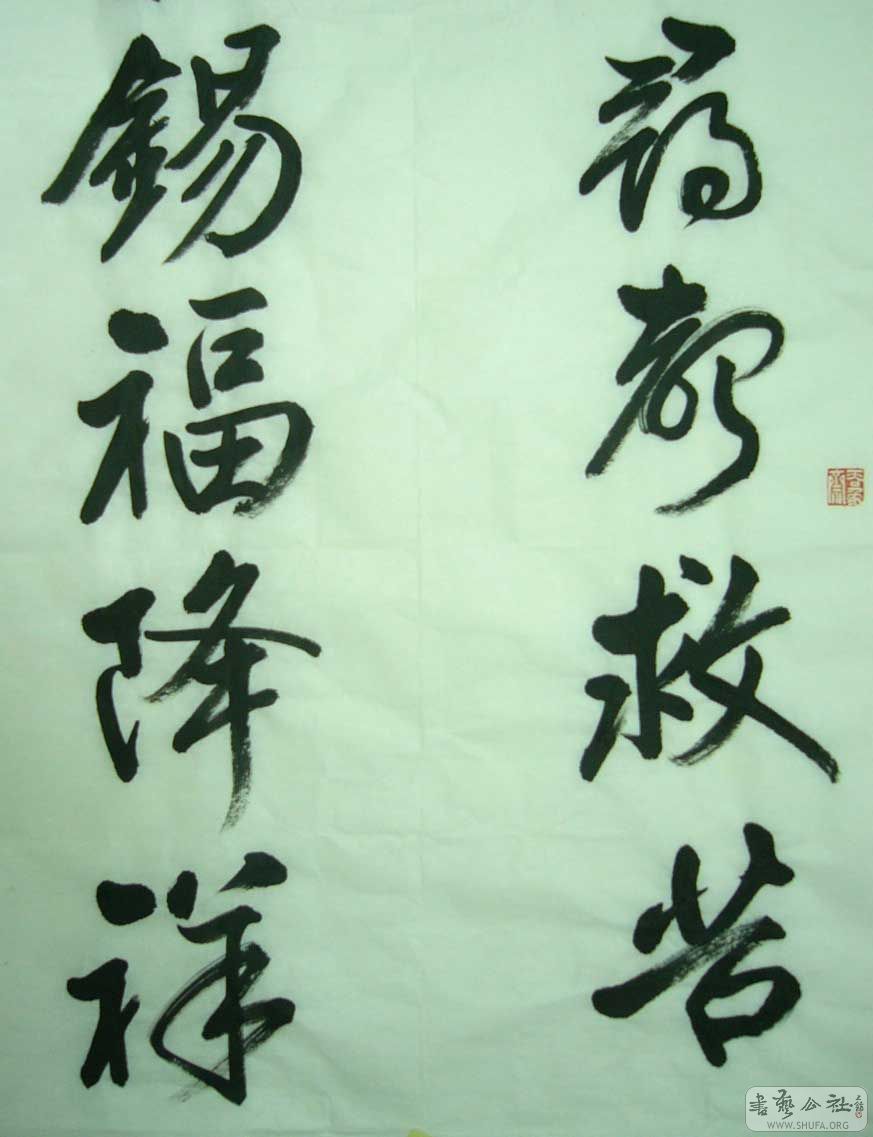 尋聲救苦
錫福降祥
書藝公社
WWW.SHUFA.ORG